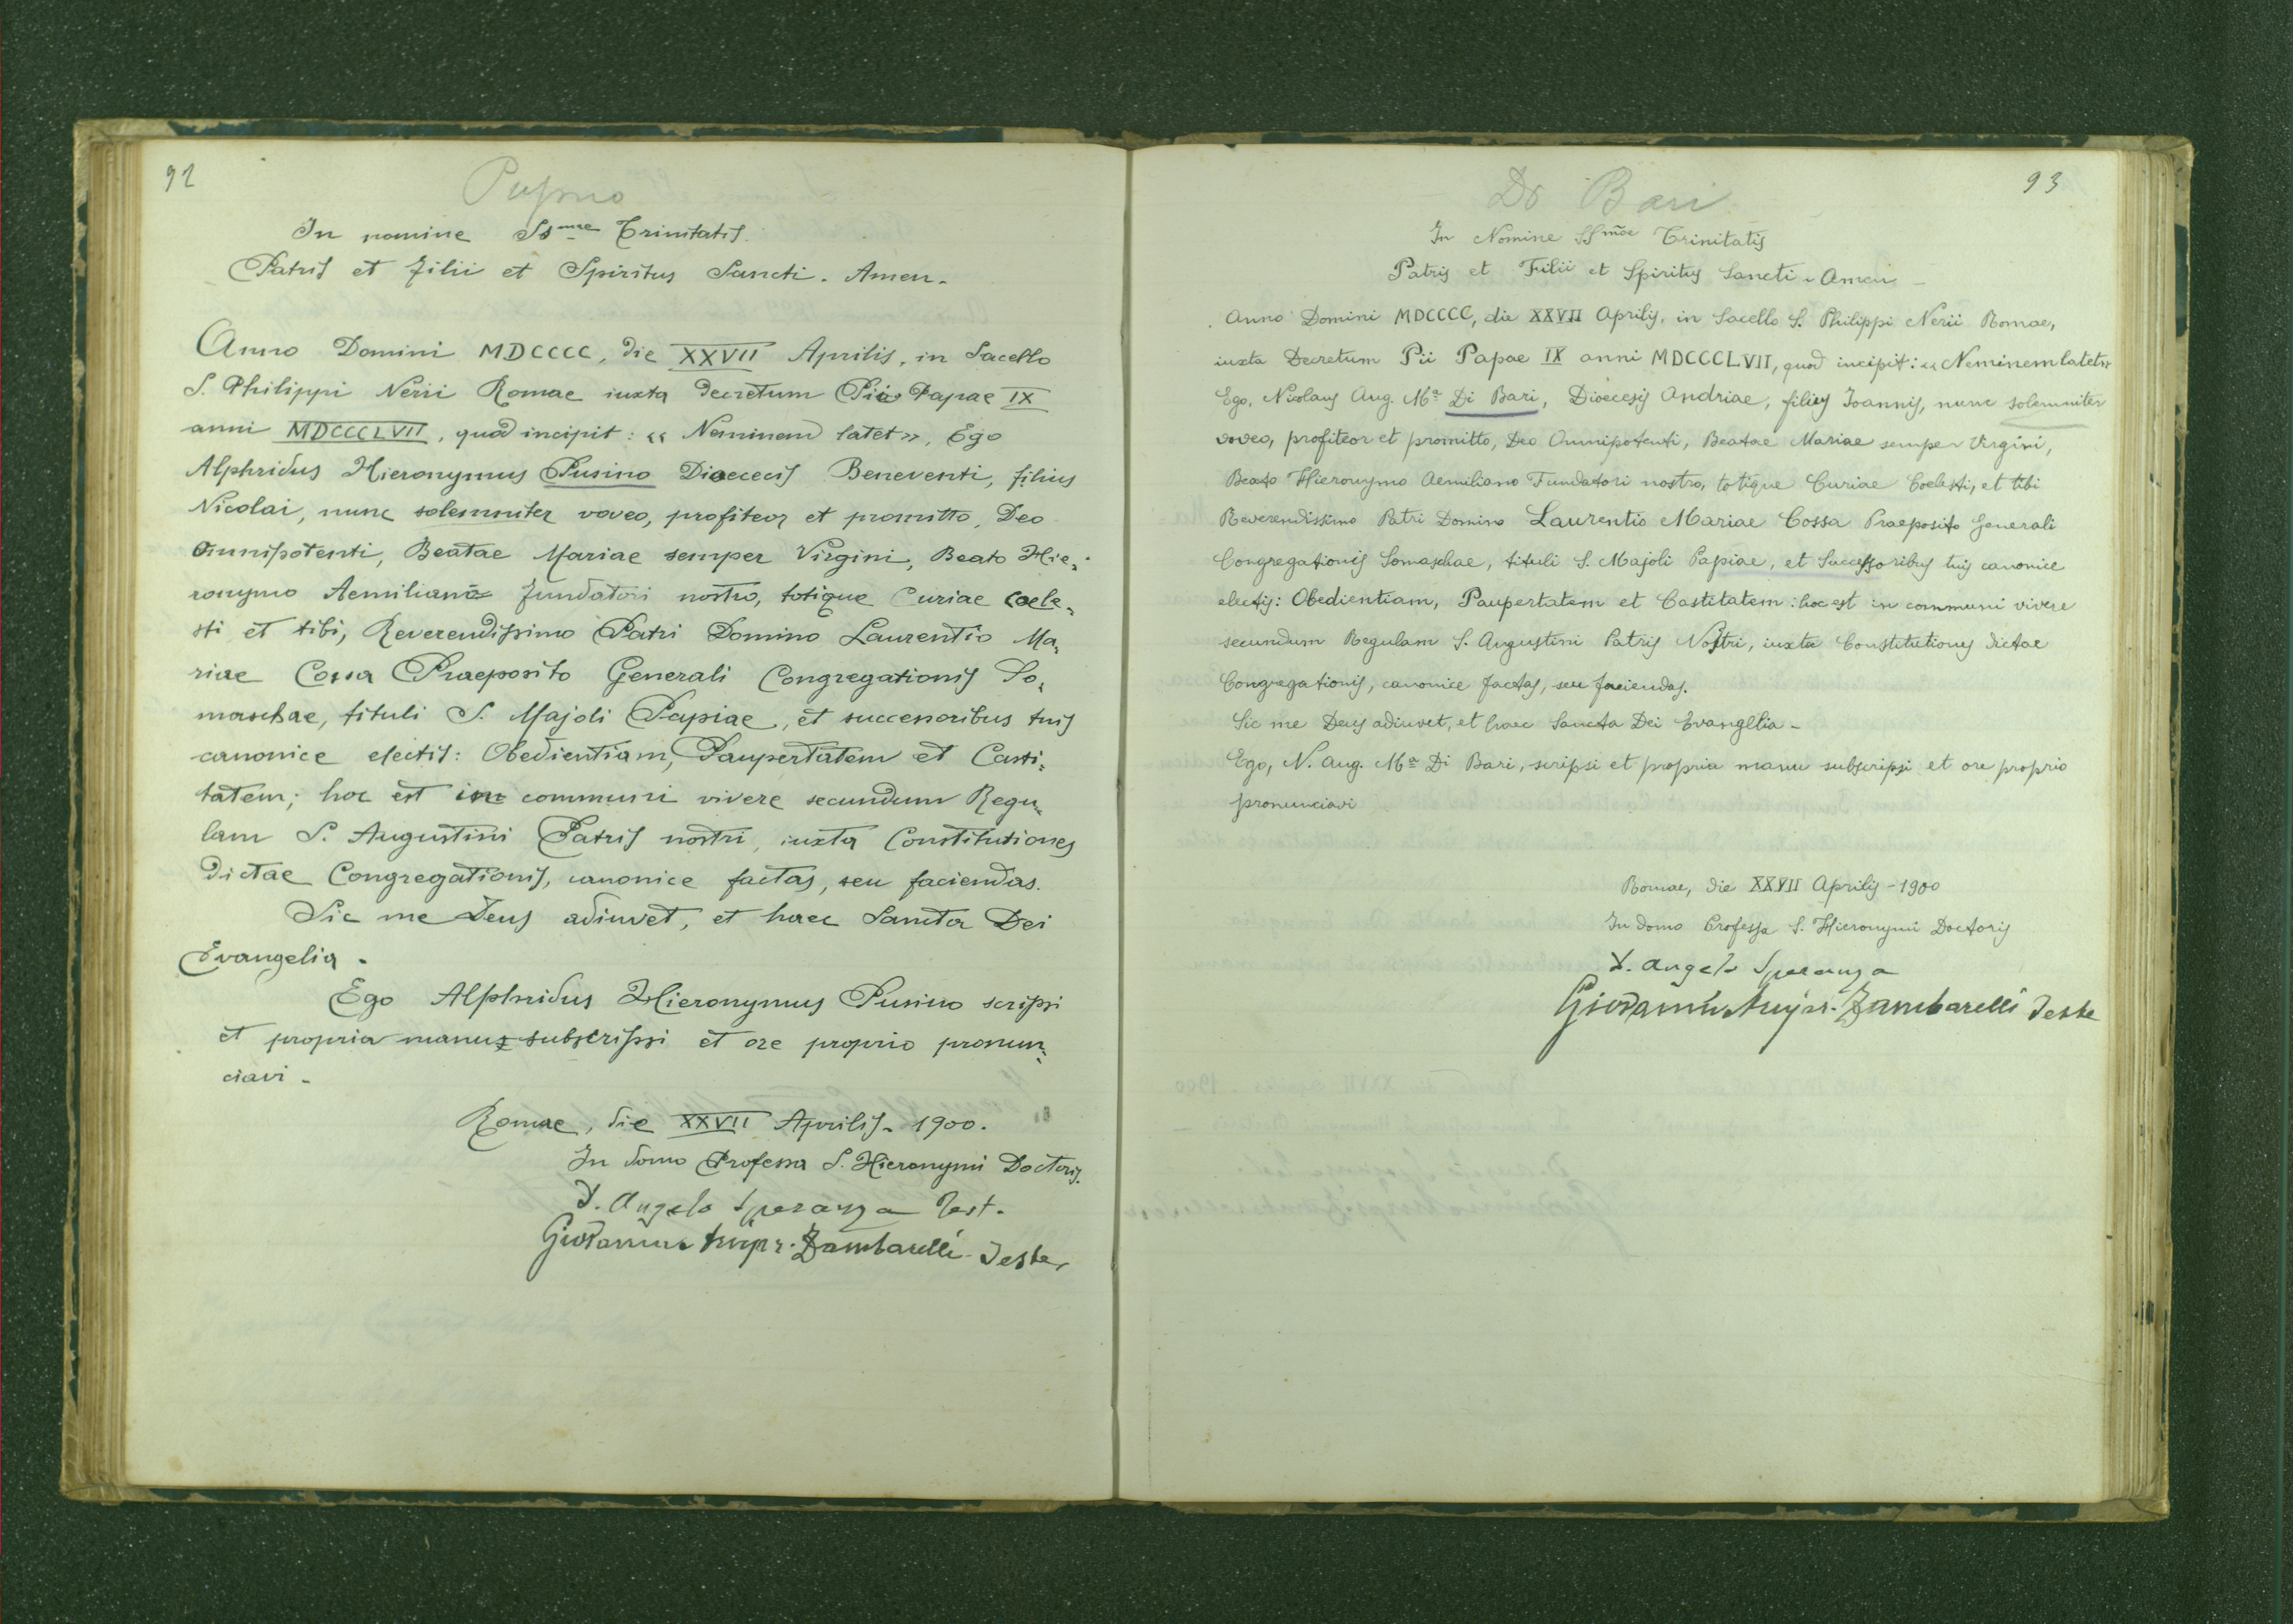 92
Pusino
In nomine SSmae Trinitatis.
Patris et Filii et Spiritus Sancti. Amen.
Anno Domini MDCCCC, die XXVII Aprilis, in Sacello
S. Philippi Nerii Romae iuxta decretum Pii Papae IX
anni MDCCCLVII, quod incipit: « Neminem latet », Ego
Alphridus Hieronymus Pusino Dioececis Beneventi, filius
Nicolai, nunc solemniter voveo, profiteor et promitto, Deo
Omnipotenti, Beatae Mariae semper Virgini, Beato Hie-
ronymo Aemiliano Fundatori nostro, totique Curiae coele-
sti et tibi, Reverendissimo Patri Domino Laurentio Ma-
riae Cossa Praeposito Generali Congregationis So-
maschae, tituli S. Majoli Papiae, et successoribus tuis
canonice electis: Obedientiam, Paupertatem et Casti-
tatem; hoc est in communi vivere secundum Regu-
lam S. Augustini Patris nostri, iuxta Constitutiones
dictae Congregationis, canonice factas, seu faciendas.
Sic me Deus adiuvet, et haec Sancta Dei
Evangelia.
Ego Alphridus Hieronymus Pusino scripsi
et propria manu subscripsi et ore proprio pronun-
ciavi.
Romae, die XXVII Aprilis. 1900.
In domo Professa S. Hieronymi Doctoris.
D. Angelo Speranza Test.
Giovanni Zambarelli Teste
93
Di Bari
In Nomine SSmae Trinitatis
Patris et Filii et Spiritus Sancti. Amen
Anno Domini MDCCCC, die XXVII Aprilis, in Sacello S. Philippi Nerii Romae,
iuxta Decretum Pii Papae IX anni MDCCCLVII, quod incipit: « Neminem latet »
Ego, Nicolaus Aug. Ma Di Bari, Dioecesis Andriae, filius Joannis, nunc solemniter
voveo, profiteor et promitto, Deo Omnipotenti, Beatae Mariae semper Virgini,
Beato Hieronymo Aemiliano Fundatori nostro, totique Curiae Coelesti, et tibi
Reverendissimo Patri Domino Laurentio Mariae Cossa Praeposito Generali
Congregationis Somaschae, tituli S. Majoli Papiae, et Successoribus tuis canonice
electis: Obedientiam, Paupertatem et Castitatem: hoc est in communi vivere
secundum Regulam S. Augustini Patris Nostri, iuxta Constitutiones dictae
Congregationis, canonice factas, seu faciendas.
Sic me Deus adiuvet, et haec Sancta Dei Evanglia -
Ego, N. Aug. Ma Di Bari, scripsi et propria manu subscripsi et ore proprio
pronunciavi
Romae, die XXVII Aprilis - 1900
In domo Professa S. Hieronymi Doctoris
D. Angelo Speranza
Giovanni Zambarelli Teste